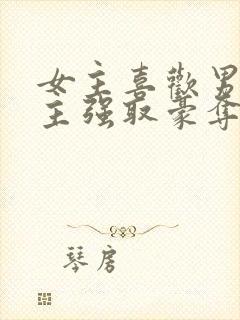 女主喜歡男
主強取豪奪
琴房